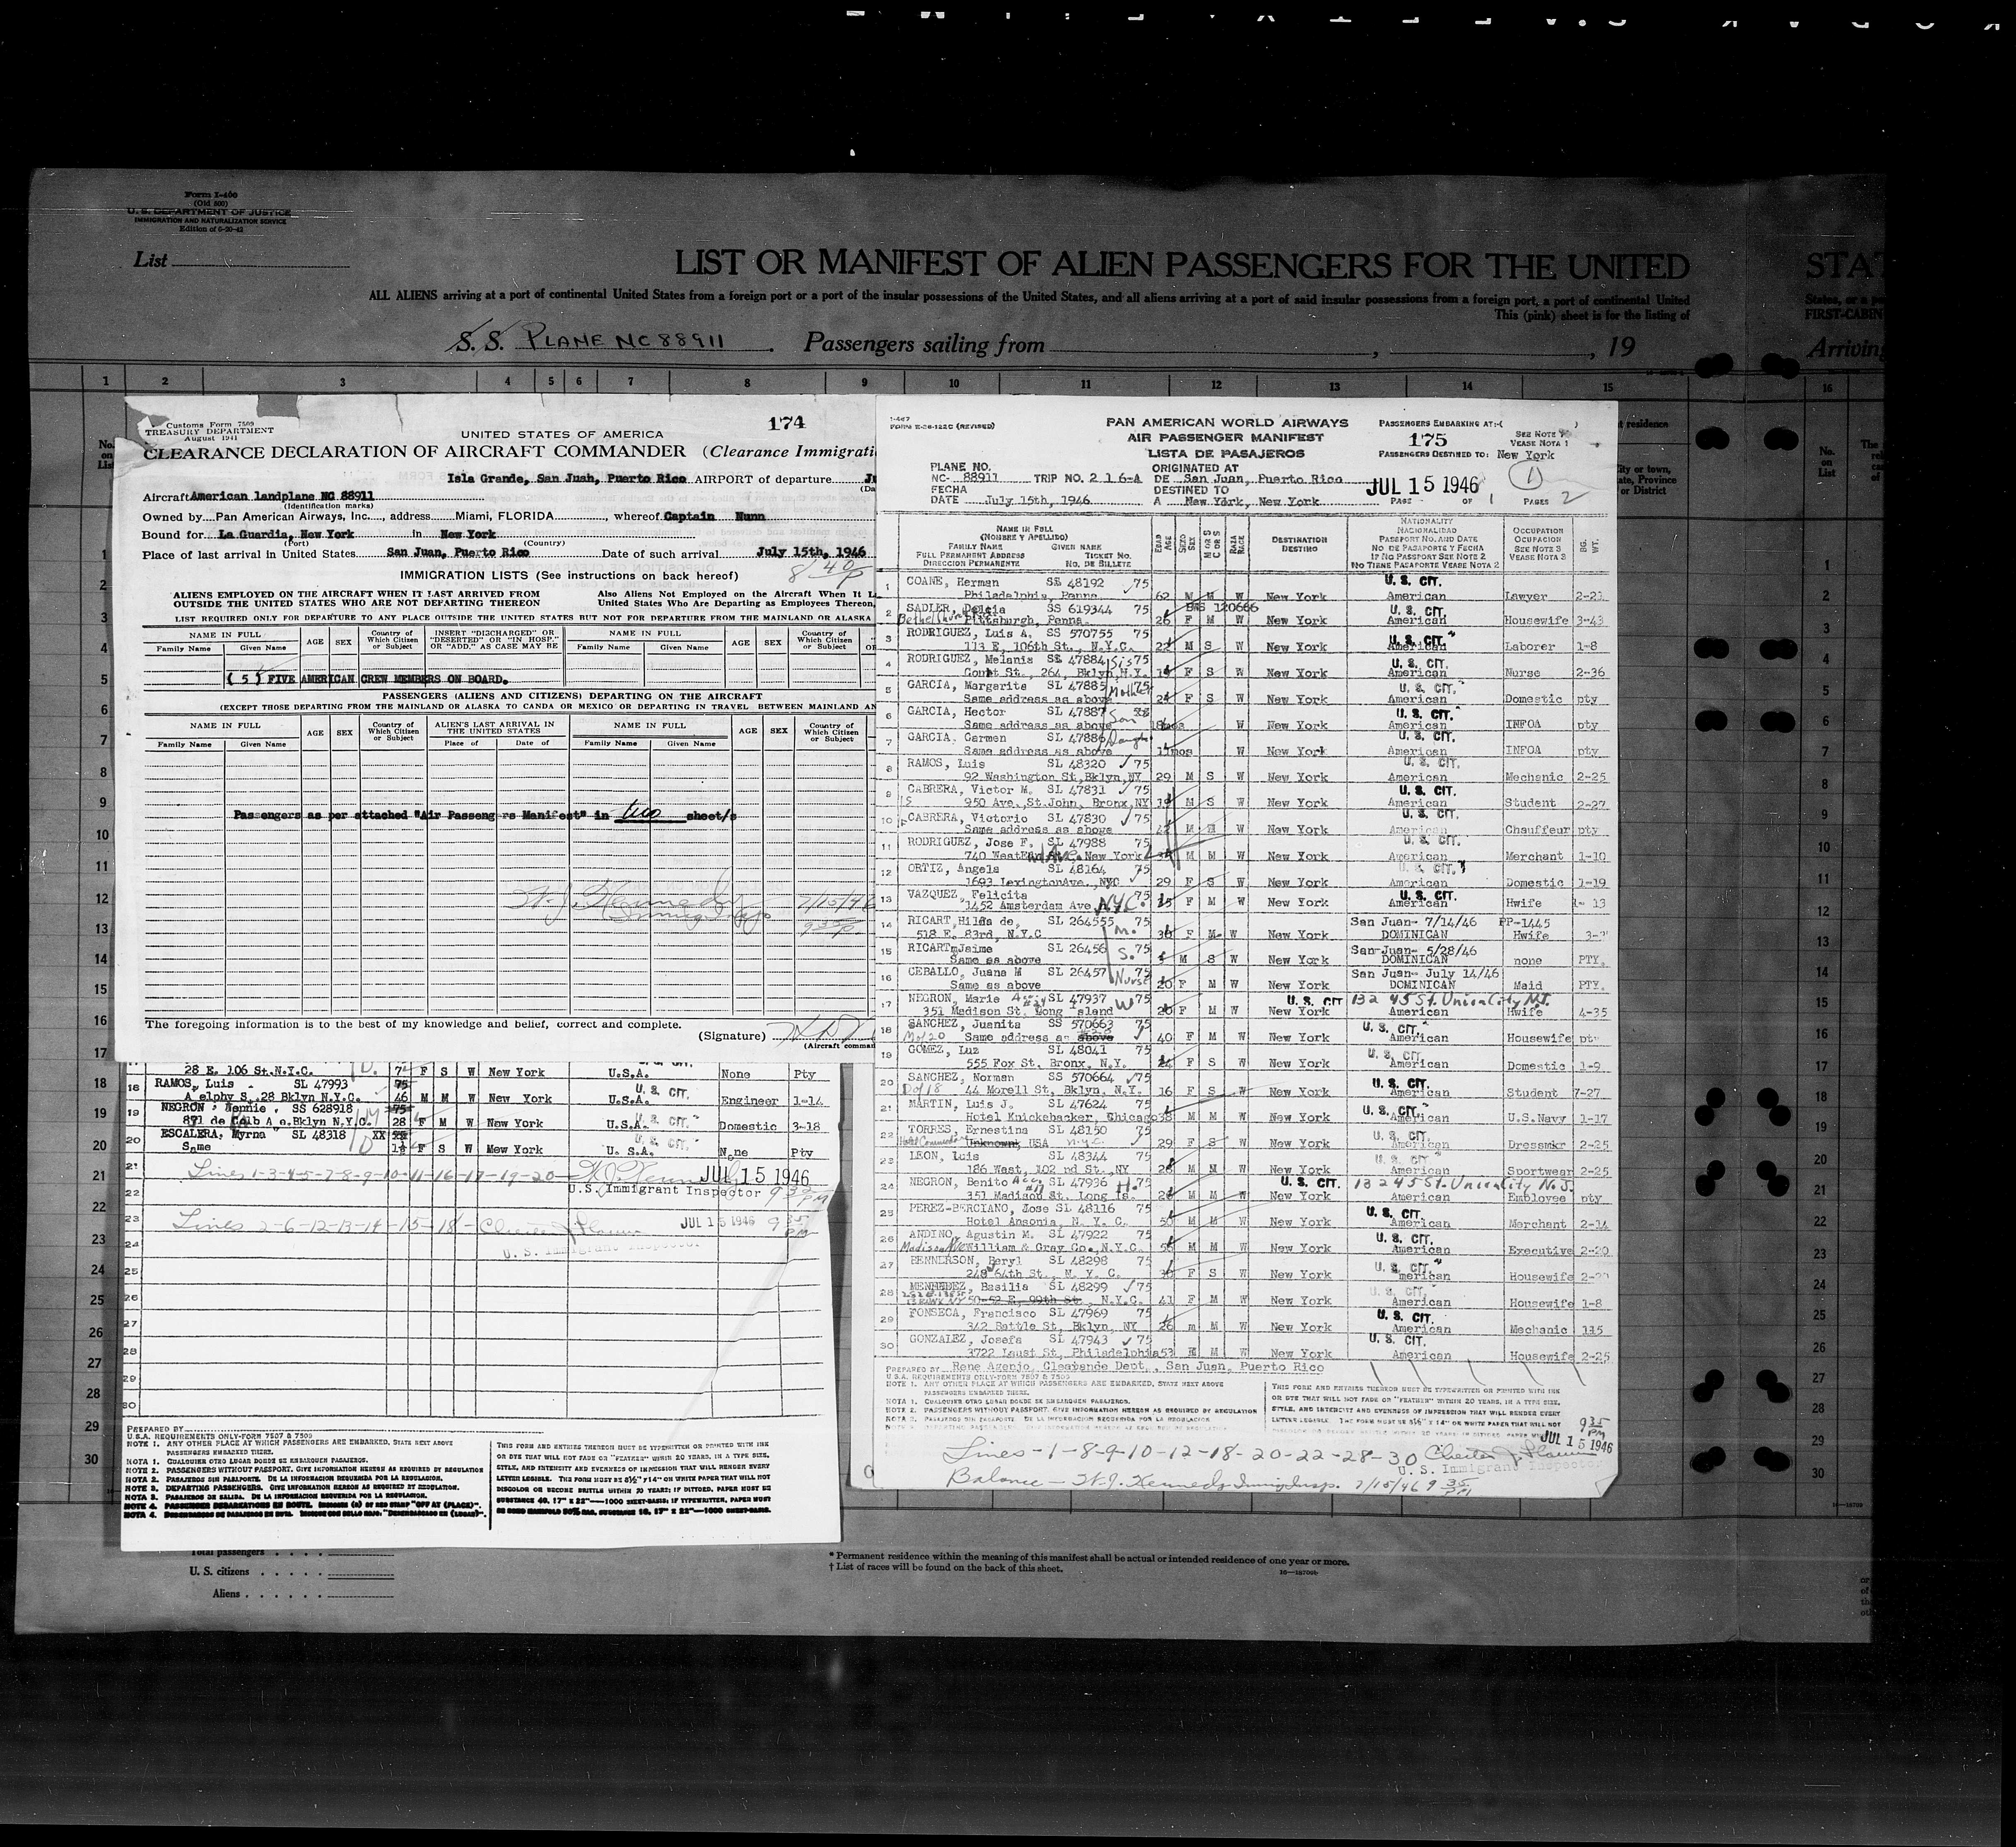 Form I-400
(Old 500)
U. S. DEPARTMENT OF JUSTICE
IMMIGRATION AND NATURALIZATION SERVICE
Edition of 6-20-42
List
LIST OR MANIFEST OF ALIEN PASSENGERS FOR THE UNITED
STAT
ALL ALIENS arriving at a port of continental United States from a foreign port or a port of the insular possessions of the United States, and all aliens arriving at a port of said insular possessions from a foreign port, a port of continental United
This (pink) sheet is for the listing of
FIRST-CABIN
S. S. PLANE NC 88911 Passengers sailing from , , 19
Arriving
1 2 3 4 5 6 7 8 9 10 11 12 13 14 15 16
Customs Form 7509
TREASURY DEPARTMENT
August 1941
174
UNITED STATES OF AMERICA
CLEARANCE DECLARATION OF AIRCRAFT COMMANDER (Clearance Immigrati
Isla Grande, San Juan, Puerto Rico AIRPORT of departure
Aircraft American landplane NC 88911
(Identification marks)
Owned by Pan American Airways, Inc., address Miami, FLORIDA, whereof Captain Nunn
Bound for La Guardia, New York in New York
(Port) (Country)
Place of last arrival in United States San Juan, Puerto Rico Date of such arrival July 15th, 1946
8 40/P
IMMIGRATION LISTS (See instructions on back hereof)
ALIENS EMPLOYED ON THE AIRCRAFT WHEN IT LAST ARRIVED FROM
OUTSIDE THE UNITED STATES WHO ARE NOT DEPARTING THEREON
Also Aliens Not Employed on the Aircraft When It L
United States Who Are Departing as Employees Thereon,
LIST REQUIRED ONLY FOR DEPARTURE TO ANY PLACE OUTSIDE THE UNITED STATES BUT NOT FOR DEPARTURE FROM THE MAINLAND OR ALASKA
NAME IN FULL AGE SEX Country of Which Citizen or Subject INSERT "DISCHARGED" OR "DESERTED" OR "IN HOSP." OR "ADD," AS CASE MAY BE NAME IN FULL AGE SEX Country of Which Citizen or Subject
Family Name Given Name Family Name Given Name
( 5 ) FIVE AMERICAN CREW MEMBERS ON BOARD.
PASSENGERS (ALIENS AND CITIZENS) DEPARTING ON THE AIRCRAFT
(EXCEPT THOSE DEPARTING FROM THE MAINLAND OR ALASKA TO CANDA OR MEXICO OR DEPARTING IN TRAVEL BETWEEN MAINLAND AN
NAME IN FULL AGE SEX Country of Which Citizen or Subject ALIEN'S LAST ARRIVAL IN THE UNITED STATES NAME IN FULL AGE SEX Country of Which Citizen or Subject
Family Name Given Name Place of Date of Family Name Given Name
Passengers as per attached "Air Passengers Manifest" in two sheet/s
W. J. Kennedy 7/15/46
Immig Insp 9 35 P.
The foregoing information is to the best of my knowledge and belief, correct and complete.
(Signature)
(Aircraft comman
28 E. 106 St.N.Y.C. 7 F S W New York U.S.A. None Pty
18 RAMOS, Luis SL 47993 75 U. S. CIT.
46 M M W New York U.S.A. Engineer 1-14
19 NEGRON, Jennie SS 628918 75 U. S. CIT.
28 F M W New York U.S.A. Domestic 3-18
20 ESCALERA, Myrna SL 48318 XX U. S. CIT.
Same 1½ F S W New York U. S.A. None Pty
21 Lines 1-3-4-5-7-8-9-10-11-16-17-19-20 W.J. Kennedy JUL 15 1946
22 U.S. Immigrant Inspector 9 35 PM
23 Lines 2-6-12-13-14-15-18- JUL 15 1946 9 35 PM
24 U. S. Immigrant Inspector
25
26
27
28
29
30
PREPARED BY
U.S.A. REQUIREMENTS ONLY-FORM 7507 & 7509
NOTE 1. ANY OTHER PLACE AT WHICH PASSENGERS ARE EMBARKED, STATE NEXT ABOVE
PASSENGERS EMBARKED THERE.
NOTA 1. CUALQUIER OTRO LUGAR DONDE SE EMBARQUEN PASAJEROS.
NOTE 2. PASSENGERS WITHOUT PASSPORT. GIVE INFORMATION HEREON AS REQUIRED BY REGULATION
NOTA 2. PASAJEROS SIN PASAPORTE. DE LA INFORMACION REQUERIDA POR LA REGULACION.
NOTE 3. DEPARTING PASSENGERS. GIVE INFORMATION HEREON AS REQUIRED BY REGULATION.
NOTA 3. PASAJEROS DE SALIDA. DE LA INFORMACION REQUERIDA POR LA REGULACION.
THIS FORM AND ENTRIES THEREON MUST BE TYPEWRITTEN OR PRINTED WITH INK
OR DYE THAT WILL NOT FADE OR "FEATHER" WITHIN 20 YEARS, IN A TYPE SIZE,
STYLE, AND INTENSITY AND EVENNESS OF IMPRESSION THAT WILL RENDER EVERY
LETTER LEGIBLE. THE FORM MUST BE 8½" x 14" ON WHITE PAPER THAT WILL NOT
DISCOLOR OR BECOME BRITTLE WITHIN 20 YEARS; IF DITTOED, PAPER MUST BE
SUBSTANCE 40, 17" X 22"—1000 SHEET-BASIS; IF TYPEWRITTEN, PAPER MUST
PAN AMERICAN WORLD AIRWAYS
AIR PASSENGER MANIFEST
LISTA DE PASAJEROS
PASSENGERS EMBARKING AT:-( )
175 SEE NOTE 1
VEASE NOTA 1
PASSENGERS DESTINED TO: New York
PLANE NO.
NC- 88911 TRIP NO. 2 1 6-A
ORIGINATED AT
DE San Juan, Puerto Rico
FECHA
DATE July 15th, 1946
DESTINED TO
A New York, New York
JUL 15 1946
PAGE 1 OF PAGES 2
NAME IN FULL
(NOMBRE Y APELLIDO)
FAMILY NAME GIVEN NAME
FULL PERMANENT ADDRESS TICKET NO.
DIRECCION PERMANENTE NO. DE BILLETE
EDAD AGE SEXO SEX M OR S C OR S RAZA RACE
DESTINATION
DESTINO
NATIONALITY
NACIONALIDAD
PASSPORT NO. AND DATE
NO DE PASAPORTE Y FECHA
IF NO PASSPORT SEE NOTE 2
NO TIENE PASAPORTE VEASE NOTA 2
OCCUPATION
OCUPACION
SEE NOTE 3
VEASE NOTA 3
BG. WT.
1 COANE, Herman SL 48192 75 U. S. CIT.
Philadelphia, Penna. 62 M M W New York American Lawyer 2-21
2 SADLER, Delcia SS 619344 75 120666 U. S. CIT.
Pittsburgh, Penna. 26 F M W New York American Housewife 3-43
3 RODRIGUEZ, Luis A. SS 570755 75 U. S. CIT.
113 E. 106th St., N.Y.C. 22 M S W New York American Laborer 1-8
4 RODRIGUEZ, Melania SL 47884 Sis 75 U. S. CIT.
Court St., 264, Bklyn,N.Y. F S W New York American Nurse 2-36
5 GARCIA, Margarita SL 47885 Mother U. S. CIT.
Same address as above 24 F S W New York American Domestic pty
6 GARCIA, Hector SL 47887 Son U. S. CIT.
Same address as above W New York American INFOA pty
7 GARCIA, Carmen SL 47886 U. S. CIT.
Same address as above 11mos W New York American INFOA pty
8 RAMOS, Luis SL 48320 75 U. S. CIT.
92 Washington St,Bklyn,NY 29 M S W New York American Mechanic 2-25
9 CABRERA, Victor M. SL 47831 75 U. S. CIT.
950 Ave. St.John, Bronx,NY 19 M S W New York American Student 2-27
10 CABRERA, Victorio SL 47830 75 U. S. CIT.
Same address as above 42 M M W New York American Chauffeur pty
11 RODRIGUEZ, Jose F. SL 47988 75 U. S. CIT.
740 West End Ave. New York M M W New York American Merchant 1-10
12 ORTIZ, Angela SL 48164 75 U. S. CIT.
1693 LexingtonAve. NYC 29 F S W New York American Domestic 1-19
13 VAZQUEZ, Felicita 75 U. S. CIT.
1452 Amsterdam Ave N.Y.C. 35 F M W New York American Hwife 1- 13
14 RICART,Hilda de, SL 264555 75 San Juan- 7/14/46 PP-1445
518 E. 83rd, N.Y.C M. 30 F M W New York DOMINICAN Hwife
15 RICART,Jaime SL 26456 75 San Juan- 5/28/46
Same as above S. M S W New York DOMINICAN none PTY.
16 CEBALLO, Juana M SL 26457 75 San Juan- July 14/46
Same as above Nurse 20 F M W New York DOMINICAN Maid PTY.
17 NEGRON, Marie SL 47937 W 75 U. S. CIT 132 45 St. Union City N.J.
351 Madison St. Long Island 26 F M W New York American Hwife 4-35
18 SANCHEZ, Juanita SS 570663 75 U. S. CIT.
M of 20 Same address as above 40 F M W New York American Housewife pty
19 GOMEZ, Luz SL 48041 75 U. S. CIT.
555 Fox St. Bronx, N.Y. 24 F S W New York American Domestic 1-9
20 SANCHEZ, Norman SS 570664 75 U. S. CIT.
D of 18 44 Morell St., Bklyn, N.Y. 16 F S W New York American Student 7-27
21 MARTIN, Luis J. SL 47624 75 U. S. CIT.
Hotel Knickebacker, Chicago 38 M M W New York American U.S.Navy 1-17
22 TORRES, Ernestina SL 48150 U. S. CIT.
Hotel Commodore Unknown, USA N.Y.C. 29 F S W New York American Dressmkr 2-25
23 LEON, Luis SL 48344 75 U. S. CIT.
186 West, 102 nd St., NY 28 M M W New York American Sportwear 2-25
24 NEGRON, Benito SL 47936 H. 75 U. S. CIT. 132 45 St. Union City N.J.
351 Madison St. Long Is. 26 M M W New York American Employee pty
25 PEREZ-BERCIANO, Jose SL 48116 75 U. S. CIT.
Hotel Ansonia, N. Y. C. 50 M M W New York American Merchant 2-14
26 ANDINO, Agustin M. SL 47922 75 U. S. CIT.
Madison Ave William & Gray Co., N.Y.C. 56 M M W New York American Executive 2-20
27 BENNERSON, Beryl SL 48298 75 U. S. CIT.
248 64th St., N. Y. C. F S W New York American Housewife
28 MENENDEZ, Basilia SL 48299 75 U. S. CIT.
50-52 E. 99th St., N.Y.C. 41 F M W New York American Housewife 1-8
29 FONSECA, Francisco SL 47969 75 U. S. CIT.
342 Battle St, Bklyn, NY 26 m M W New York American Mechanic 115
30 GONZALEZ, Josefa SL 47943 75 U. S. CIT.
3722 Loust St, Philadelphia 53 F M W New York American Housewife 2-25
PREPARED BY Rene Asenjo, Clearance Dept., San Juan, Puerto Rico
U.S.A. REQUIREMENTS ONLY-FORM 7507 & 7509
NOTE 1. ANY OTHER PLACE AT WHICH PASSENGERS ARE EMBARKED, STATE NEXT ABOVE
PASSENGERS EMBARKED THERE.
NOTA 1. CUALQUIER OTRO LUGAR DONDE SE EMBARQUEN PASAJEROS.
NOTE 2. PASSENGERS WITHOUT PASSPORT. GIVE INFORMATION HEREON AS REQUIRED BY REGULATION
THIS FORM AND ENTRIES THEREON MUST BE TYPEWRITTEN OR PRINTED WITH INK
OR DYE THAT WILL NOT FADE OR "FEATHER" WITHIN 20 YEARS, IN A TYPE SIZE,
STYLE, AND INTENSITY AND EVENNESS OF IMPRESSION THAT WILL RENDER EVERY
LETTER LEGIBLE. THE FORM MUST BE 8½" x 14" ON WHITE PAPER THAT WILL NOT
9 35 PM
JUL 15 1946
Lines -1-8-9-10-12-18-20-22-28-30
U. S. Immigrant Inspector
Balance - W.J. Kennedy Immig Insp. 7/15/46 9 35 PM
Total passengers
U. S. citizens
Aliens
* Permanent residence within the meaning of this manifest shall be actual or intended residence of one year or more.
† List of races will be found on the back of this sheet.